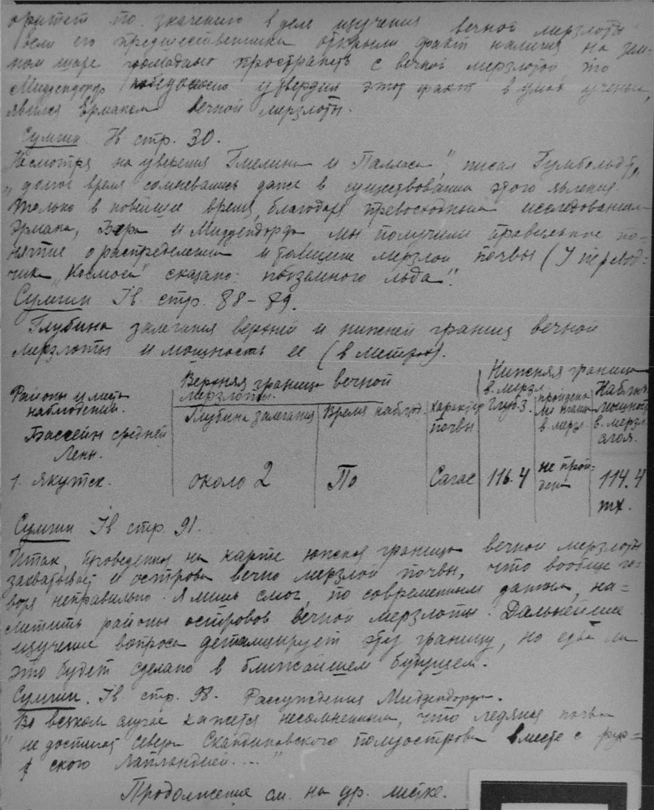 оритет по значению в деле изучения вечной мерзлоты
если его предшественники открыли факт наличия на зем-
ном шаре громадных пространств с вечной мерзлотой, то
Миддендорф победоносно утвердил этот факт в умах ученых,
явился Ермаком вечной мерзлоты.
Сумгин. стр. 30.
Несмотря на уверения Гмелина и Палласа", писал Гумбольдт,
"долгое время сомневались даже в существовании этого явления
только в новейшее время, благодаря превосходным исследованиям
Эрмана, Бэра и Миддендорфа мы получили правильное по-
нятие о распределении и толщине мерзлой почвы (У перевод-
чика "Космоса" сказано: подземного льда".
Сумгин Iв. стр. 88-89.
Глубина залегания верхней и нижней границ вечной
мерзлоты и мощность ее (в метрах).
Районы и места наблюдений.
Верхняя граница вечной мерзлоты.
Нижняя граница в. мерзл.
Глубина залегания
Время наблюд.
характер почвы
Глуб.
пройдена
в мерз
Наблюд. мощность в. мерзл.
Бассейн средней Лены.
1. Якутск.
около 2
По
116.4
не прой-
ден
114.4
Сумгин Iв стр. 91.
Итак, проведенная на карте южная граница вечной мерзлоты
захватывает и острова вечно мерзлой почвы, что вообще го-
воря неправильно. Я лишь смог, по современным данным, на-
метить районы островов вечной мерзлоты. Дальнейшее
изучение вопроса детализирует эту границу, но едва ли
это будет сделано в ближайшем будущем.
Сумгин. Iв. стр. 98. Рассуждения Миддендорфа.
Во всяком случае кажется несомненным, что ледяная почва
не достигает севера Скандинавского полуострова вместе с рус-
ской Лапландией...."
Продолжение см. на др. листке.